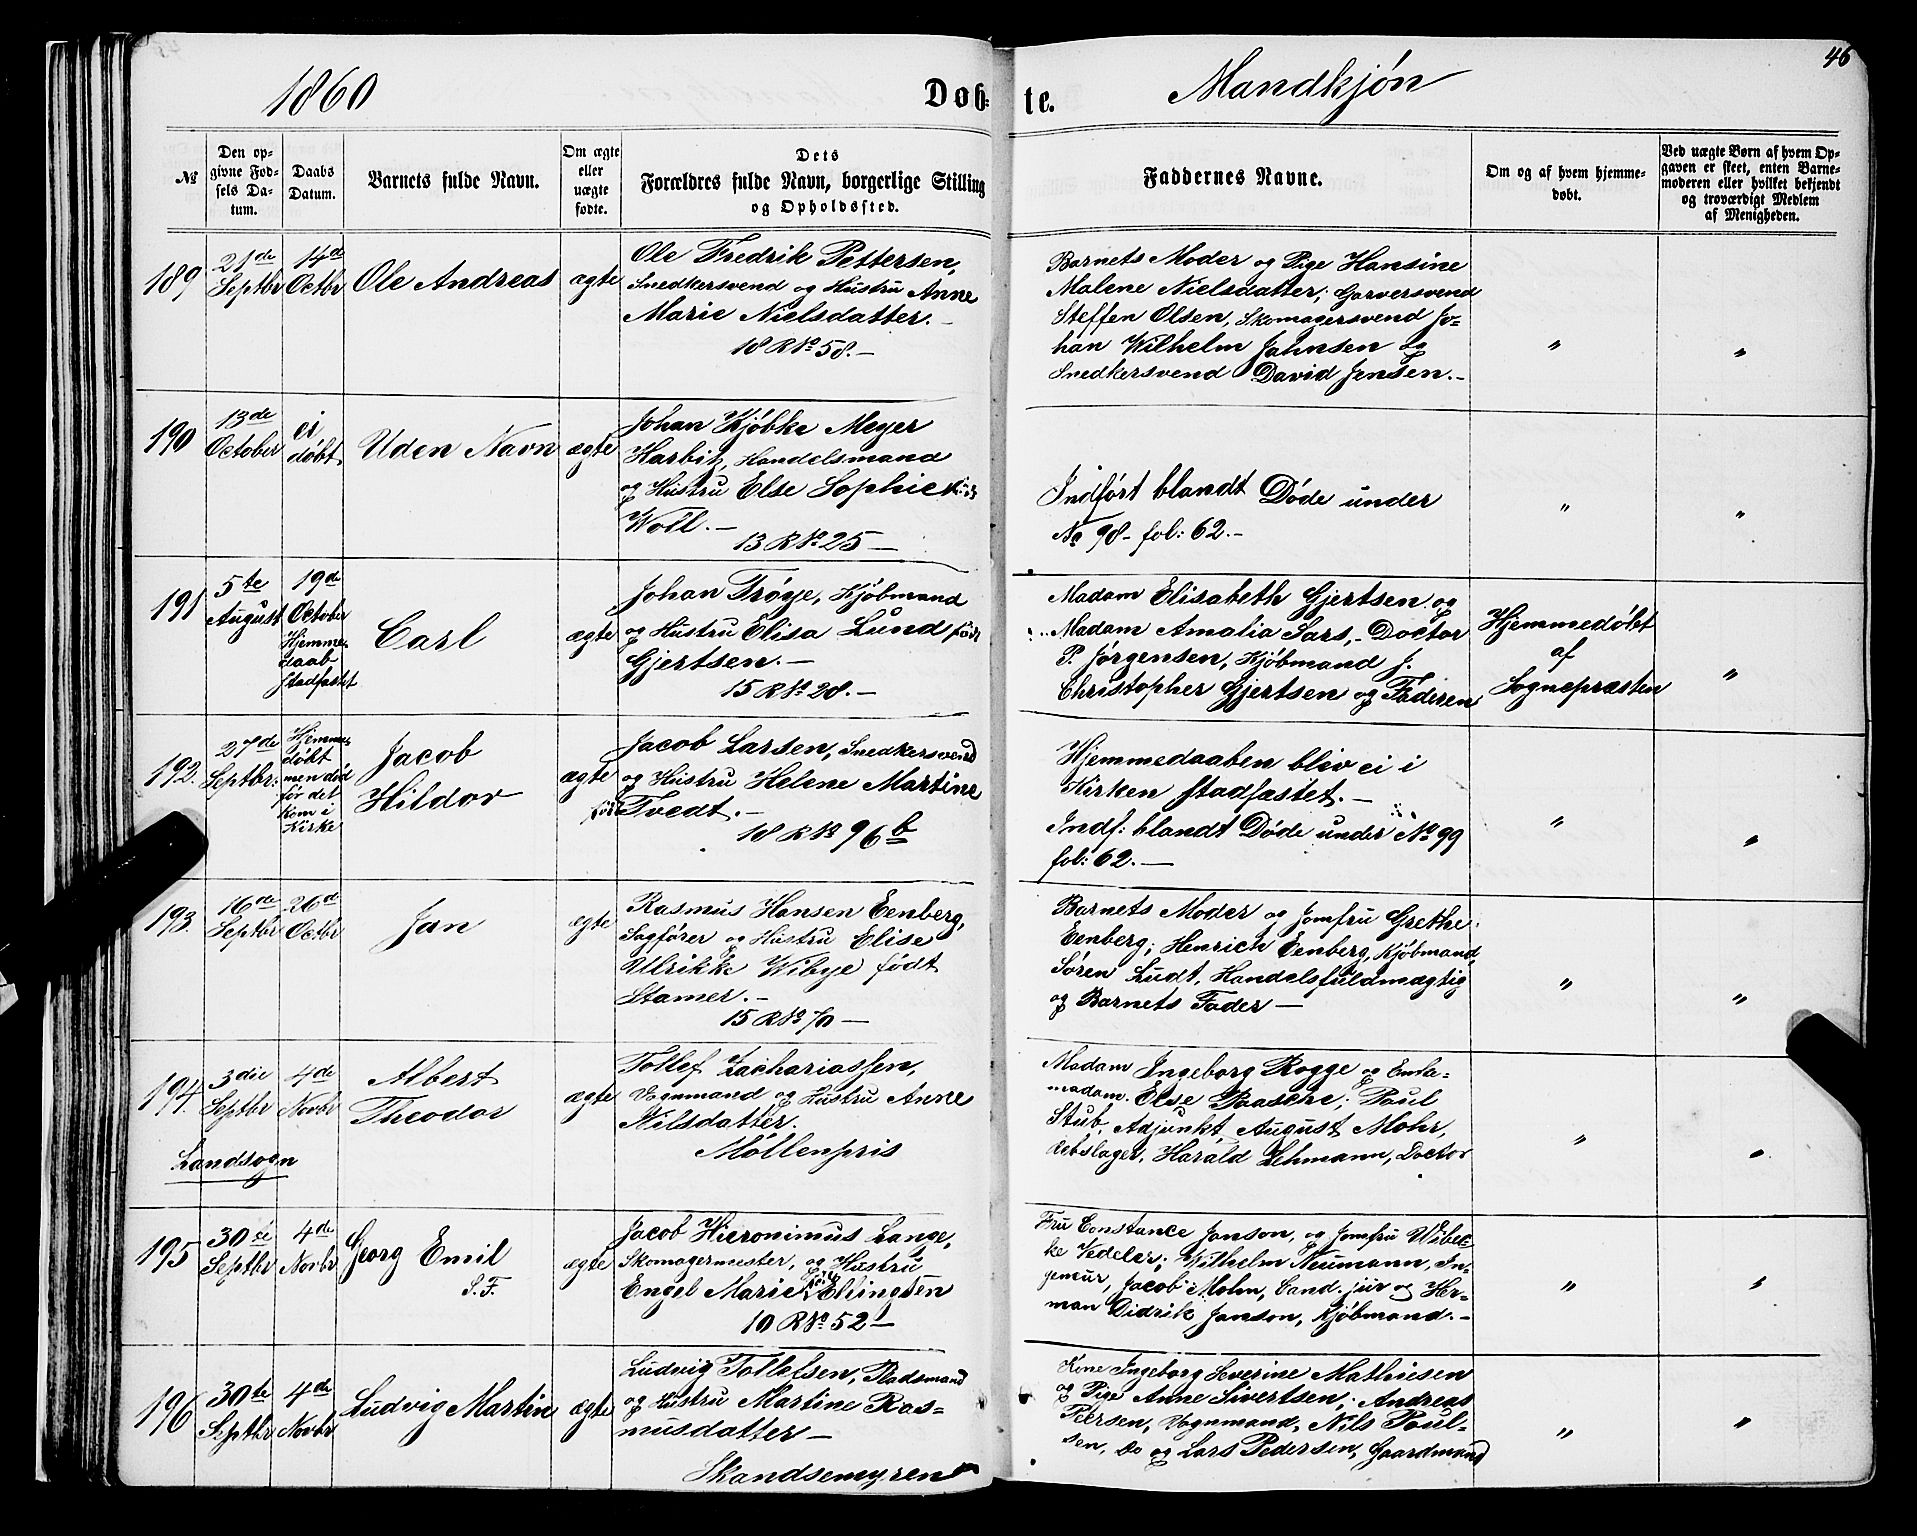 46
1860
Døb-
te.
Mandkjøn
№
Den op-
givne Fød-
sels Da-
tum.
Daabs
Datum.
Barnets fulde Navn.
Om ægte
eller
uægte
fødte.
Dets
Forældres fulde Navn, borgerlige Stilling
og Opholdssted.
Faddernes Navne.
Om og af hvem hjemme-
døbt.
Ved uægte Børn af hvem Op-
gaven er skeet, enten Barne-
moderen eller hvilket bekjendt
og troværdigt Medlem
af Menigheden.
189
21de
Septbr
14de
Octbr
Ole Andreas
ægte
Ole Fredrik Pettersen,
Snedkersvend og Hustru Anne
Marie Nielsdatter.-
18 R No 58.-
Barnets Moder og Pige Hansine
Malene Nielsdatter; Garversvend
Steffen Olsen, Skomagersvend Jo-
han Wilhelm Jahnsen og
Snedkersvend David Jensen.-
"
"
190
13de
October
ei
døbt.
Uden Navn
ægte
Johan Kjøbke Meyer
Harbitz, Handelsmand
og Hustru Else Sophie
Woll.-
13 R No 25-
Indført blandt Døde under
No 98- fol: 62.-
"
"
191
5te
August
19de
October
Hjemme-
daab
stadfæstet
Carl
ægte
Johan Trøye, Kjøbmand
og Hustru Elisa Lund født
Gjertsen.-
15 R No 28.-
Madam Elisabeth Gjertsen og
Madam Amalia Sars,- Doctor
P. Jørgensen, Kjøbmand J.
Christopher Gjertsen og Faderen
Hjemmedøbt
af
Sognepræsten
"
192.
27de
Septbr:
Hjemme-
døbt
men død
før det
kom i
Kirke
Jacob
Hildor
ægte
Jacob Larsen, Snedkersvend
og Hustru Helene Martine
født Tvedt.-
18 R No 96 b
Hjemmedaaben blev ei i
Kirken stadfæstet.-
Indf: blandt Døde under No 99
fol: 62.-
"
"
193.
16de
Septbr
26de
Octbr
Jan
ægte
Rasmus Hansen Eenberg,
Sagfører og Hustru Elise
Ulrikke Wibye født
Stamer.-
15 R No 70-
Barnets Moder og Jomfru Grethe
Eenberg; Henrich Eenberg, Kjøbmand,
Søren Ludt, Handelsfuldmægtig
og Barnets Fader-
"
"
194.
3die
Septbr
4de
Novbr
Landsogn
Albert
Theodor
ægte
Tollef Zachariassen,
Vognmand og Hustru Anne
Nilsdatter.
Møllenpris
Madam Ingeborg Rogge og Enke-
madam. Else Paasche; Paul
Stub, Adjunkt, August Mohr,
Rebslager, Harald Lehmann, Doctor
"
"
195
30te
Septbr
4de
Novbr
Georg Emil
S. F.
ægte
Jacob Hieronimus Lange,
Skomagermester, og Hustru
Engel Marie født Ellingsen
10 R No 52-
Fru Constance Janson, og Jomfru Wibec-
ke Vedeler; Wilhelm Neumann, In-
geniør, Jacob Mohn, Cand. jur og Her-
man Didrik Janson, Kjøbmand.-
"
"
196
30te
Septbr
4de
Novbr
Ludvig Martin
ægte
Ludvig Tollefsen, Baadsmand
og Hustru Martine Ras-
musdatter-
Skandsemyren
Kone Ingeborg Severine Mathiesen
og Pige Anne Sivertsen; Andreas
Peersen, Vognmand, Nils Paul-
sen, Do og Lars Pedersen, Gaardmand
"
"